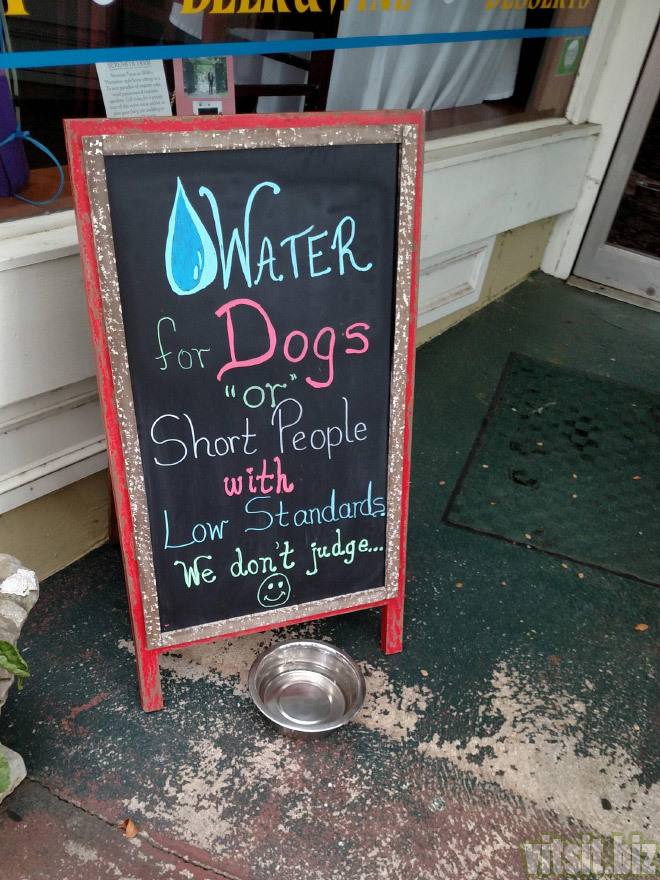 BEER & WINE
DESSERTS
WATER
for Dogs
"or"
Short People
with
Low Standards
We don't judge...
vitsit.biz